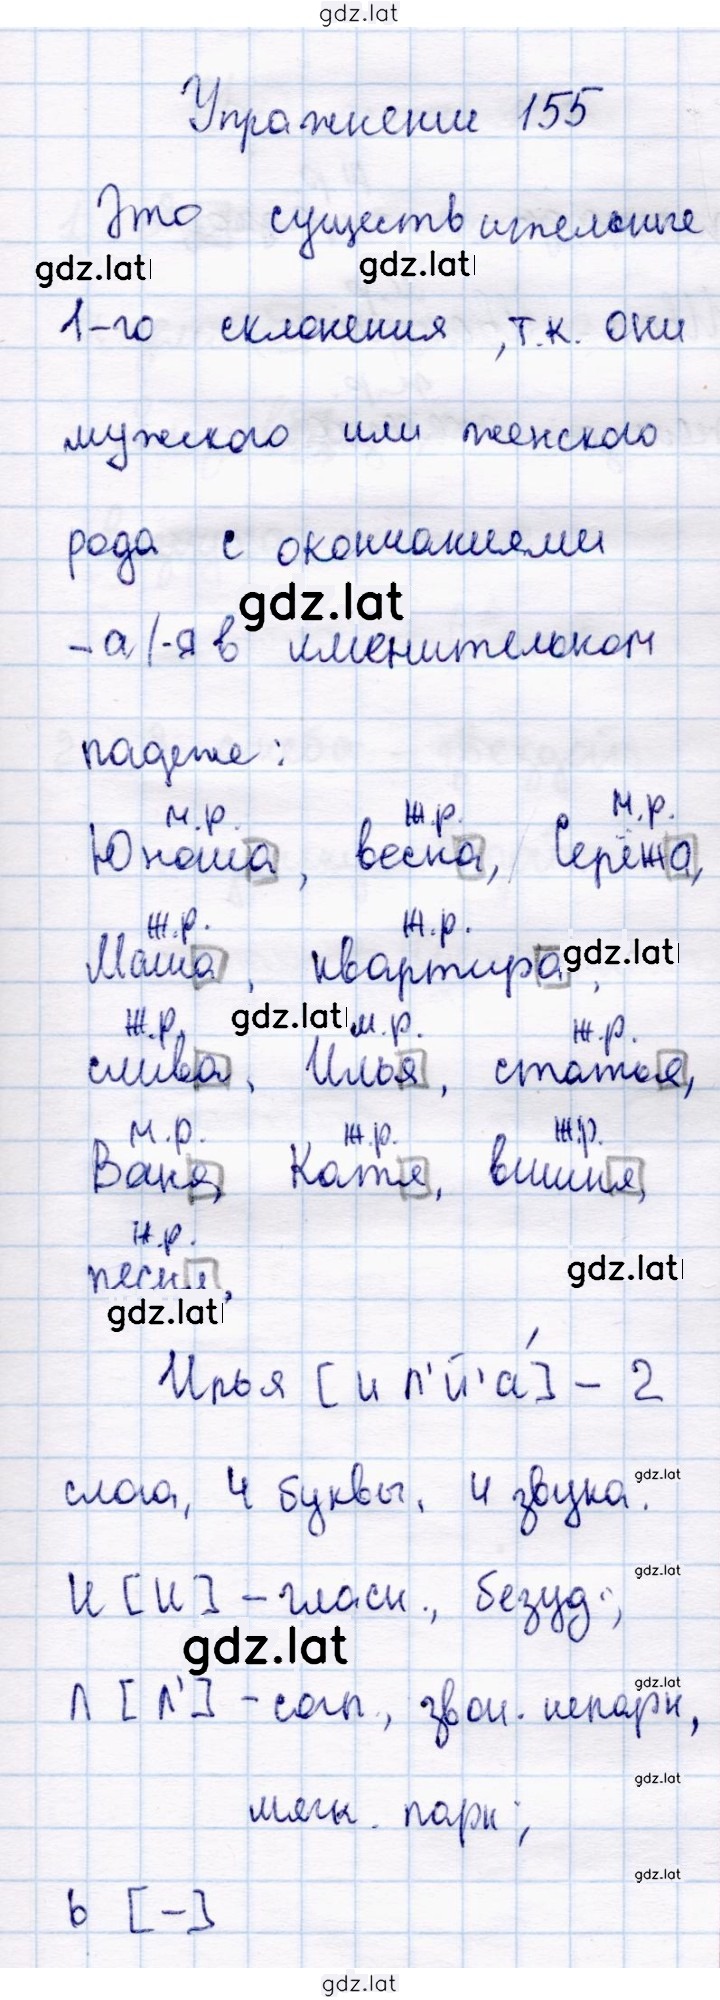 gdz.lat
Упражнение 155
Это существительные
gdz.lat gdz.lat
1-го склонения, т.к. они
мужского или женского
рода с окончаниями
gdz.lat
-а/-я в именительном
падеже:
м.р. ж.р. м.р.
Юноша, весна, Серёжа,
ж.р. ж.р.
Маша, квартира, gdz.lat
ж.р. gdz.lat м.р. ж.р.
слива, Илья, статья,
м.р. ж.р. ж.р.
Ваня, Катя, вишня,
ж.р.
песня, gdz.lat
gdz.lat
Илья [и л' й' а́] – 2
слога, 4 буквы, 4 звука. gdz.lat
И [и] – гласн., безуд.; gdz.lat
gdz.lat
л [л'] – согл., звон. непарн, gdz.lat
мягк. парн.; gdz.lat
gdz.lat
ь [–]
gdz.lat